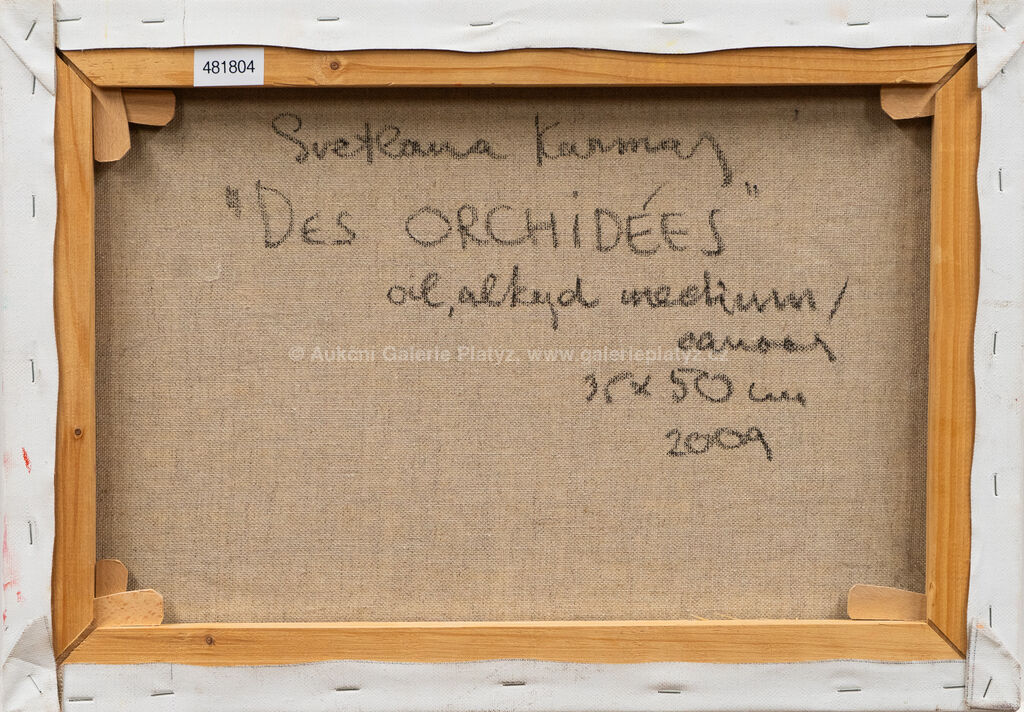 481804
Svetlana Karmaz
"DES ORCHiDÉES"
oil, alkyd medium/
canvas
35x50 cm
2009
© Aukční Galerie Platýz, www.galerieplatyz.cz